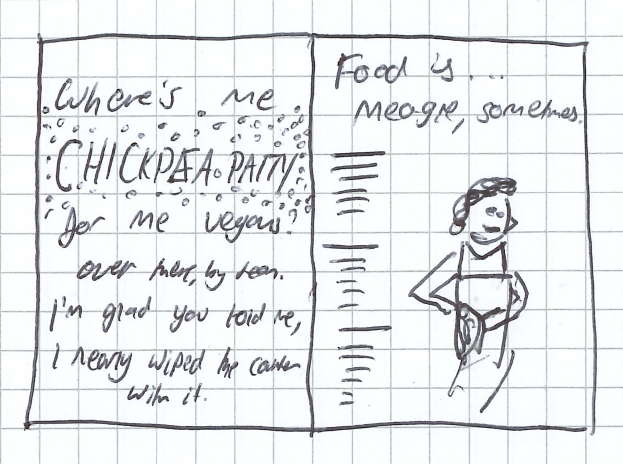 Where's me
CHICKPEA PATTY
for me vegans?
over there, by
I'm glad you told me,
I nearly wiped the counter
with it.
Food is...
meagre, sometimes.